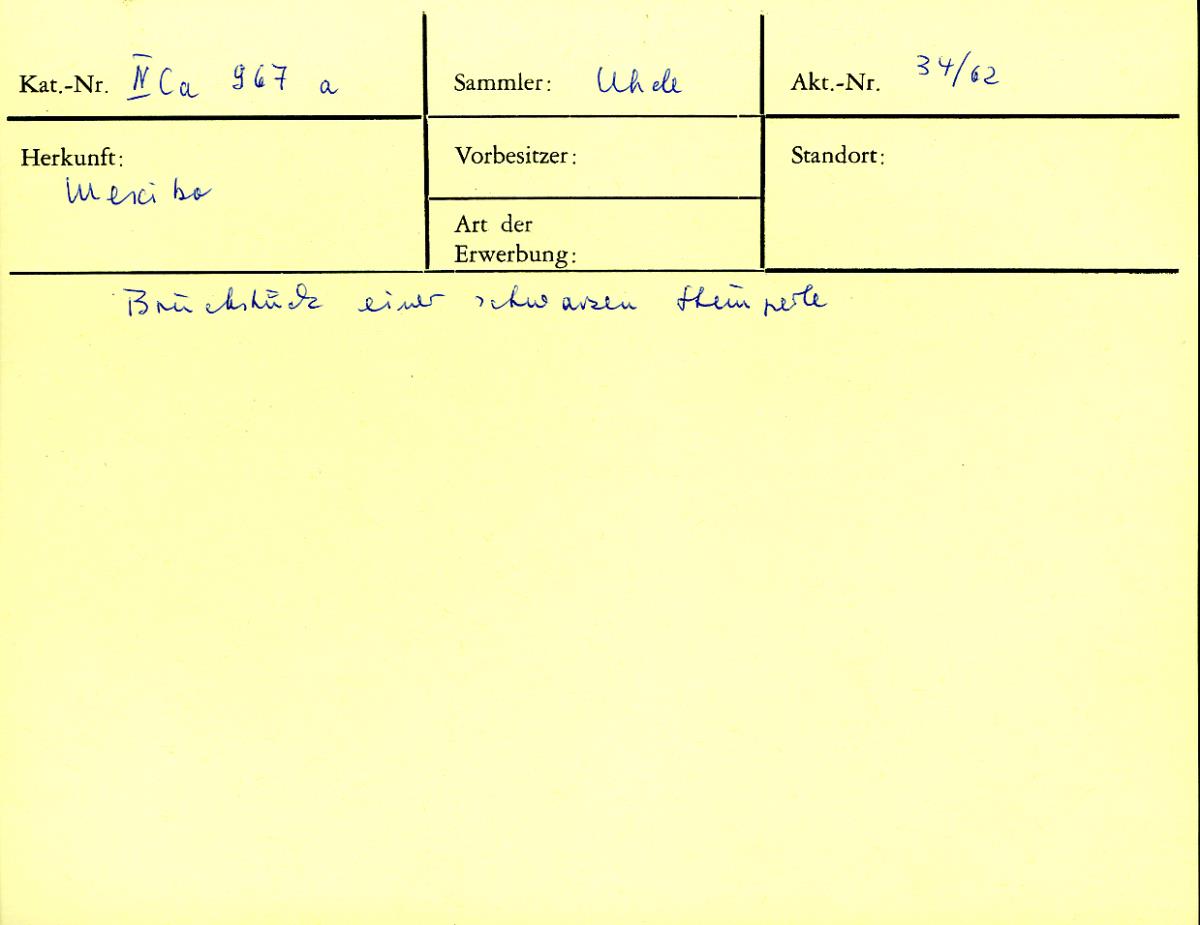 Kat.-Nr. IV Ca 967 a
Sammler: Uhde
Akt.-Nr. 34/62
Herkunft:
Mexiko
Vorbesitzer:
Art der
Erwerbung:
Standort:
Bruchstück einer schwarzen Steinperle